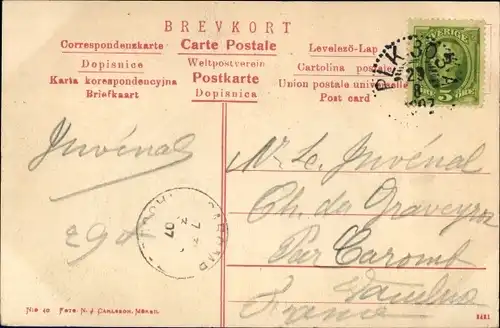 BREVKORT
Correspondenzkarte
Dopisnice
Karta korespondencyjna
Briefkaart
Carte Postale
Weltpostverein
Postkarte
Dopisnica
Levelező-Lap
Cartolina postale
Union postale universelle
Post card
SVERIGE
5 ÖRE
PLK
Juvénal
M. L. Juvénal
Ch. de Graveyron
Par Caromb
Vaucluse
France
CAROMB
07
N:o 40 Foto. N. J. Carlsson, Mörsil.